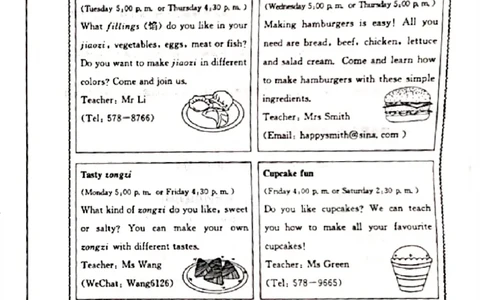 (Tuesday 5:00 p. m. or Thursday 4:30 p. m. )
What fillings (馅) do you like in your
jiaozi, vegetables, eggs, meat or fish?
Do you want to make jiaozi in different
colors? Come and join us.
Teacher: Mr Li
(Tel: 578-8766)
(Wednesday 5:00 p. m. or Thursday 5:00 p. m. )
Making hamburgers is easy! All you
need are bread, beef, chicken, lettuce
and salad cream. Come and learn how
to make hamburgers with these simple
ingredients.
Teacher: Mrs Smith
(Email: happysmith@sina. com )
Tasty zongzi
(Monday 5:00 p. m. or Friday 4:30 p. m. )
What kind of zongzi do you like, sweet
or salty? You can make your own
zongzi with different tastes.
Teacher: Ms Wang
(WeChat: Wang6126)
Cupcake fun
(Friday 4:00 p. m. or Saturday 2:30 p. m. )
Do you like cupcakes? We can teach
you how to make all your favourite
cupcakes!
Teacher: Ms Green
(Tel: 578-9665)